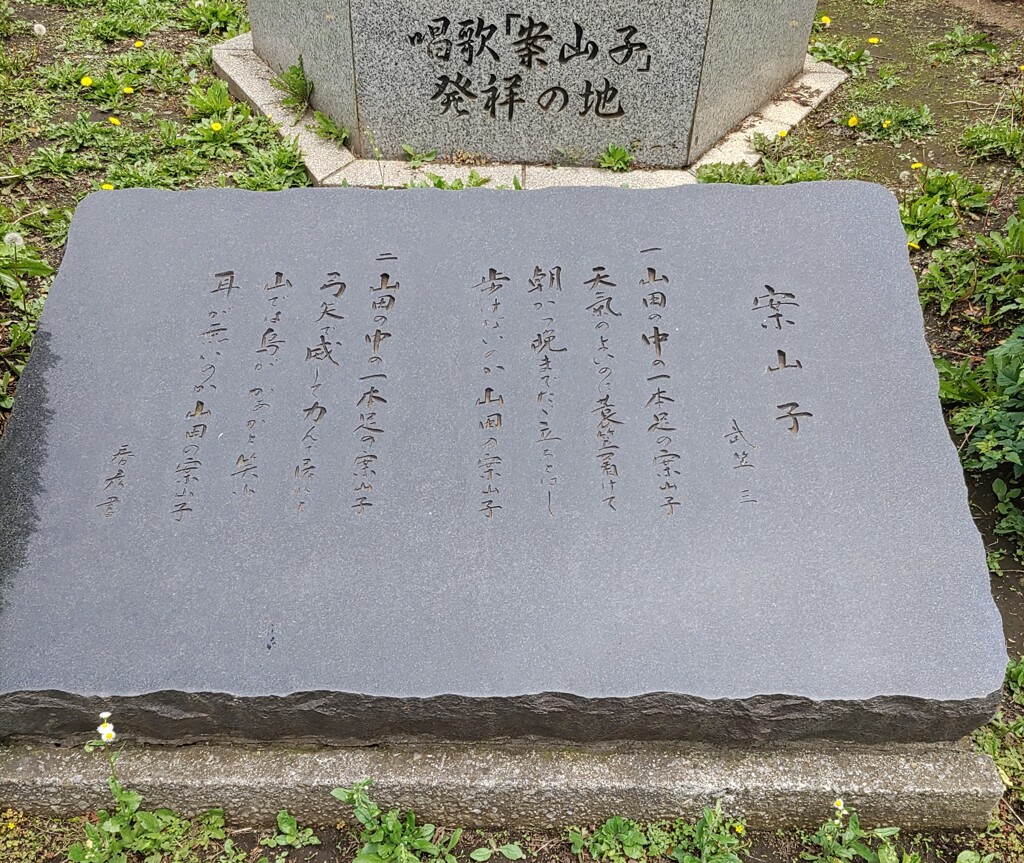 唱歌「案山子」
発祥の地
案山子
武笠 三
一 山田の中の一本足の案山子
天氣のよいのに蓑笠着けて
朝から晩までたゞ立ちどほし
歩けないのか山田の案山子
二 山田の中の一本足の案山子
弓矢で威して力んで居れど
山では烏がかあかと笑ふ
耳が無いのか山田の案山子